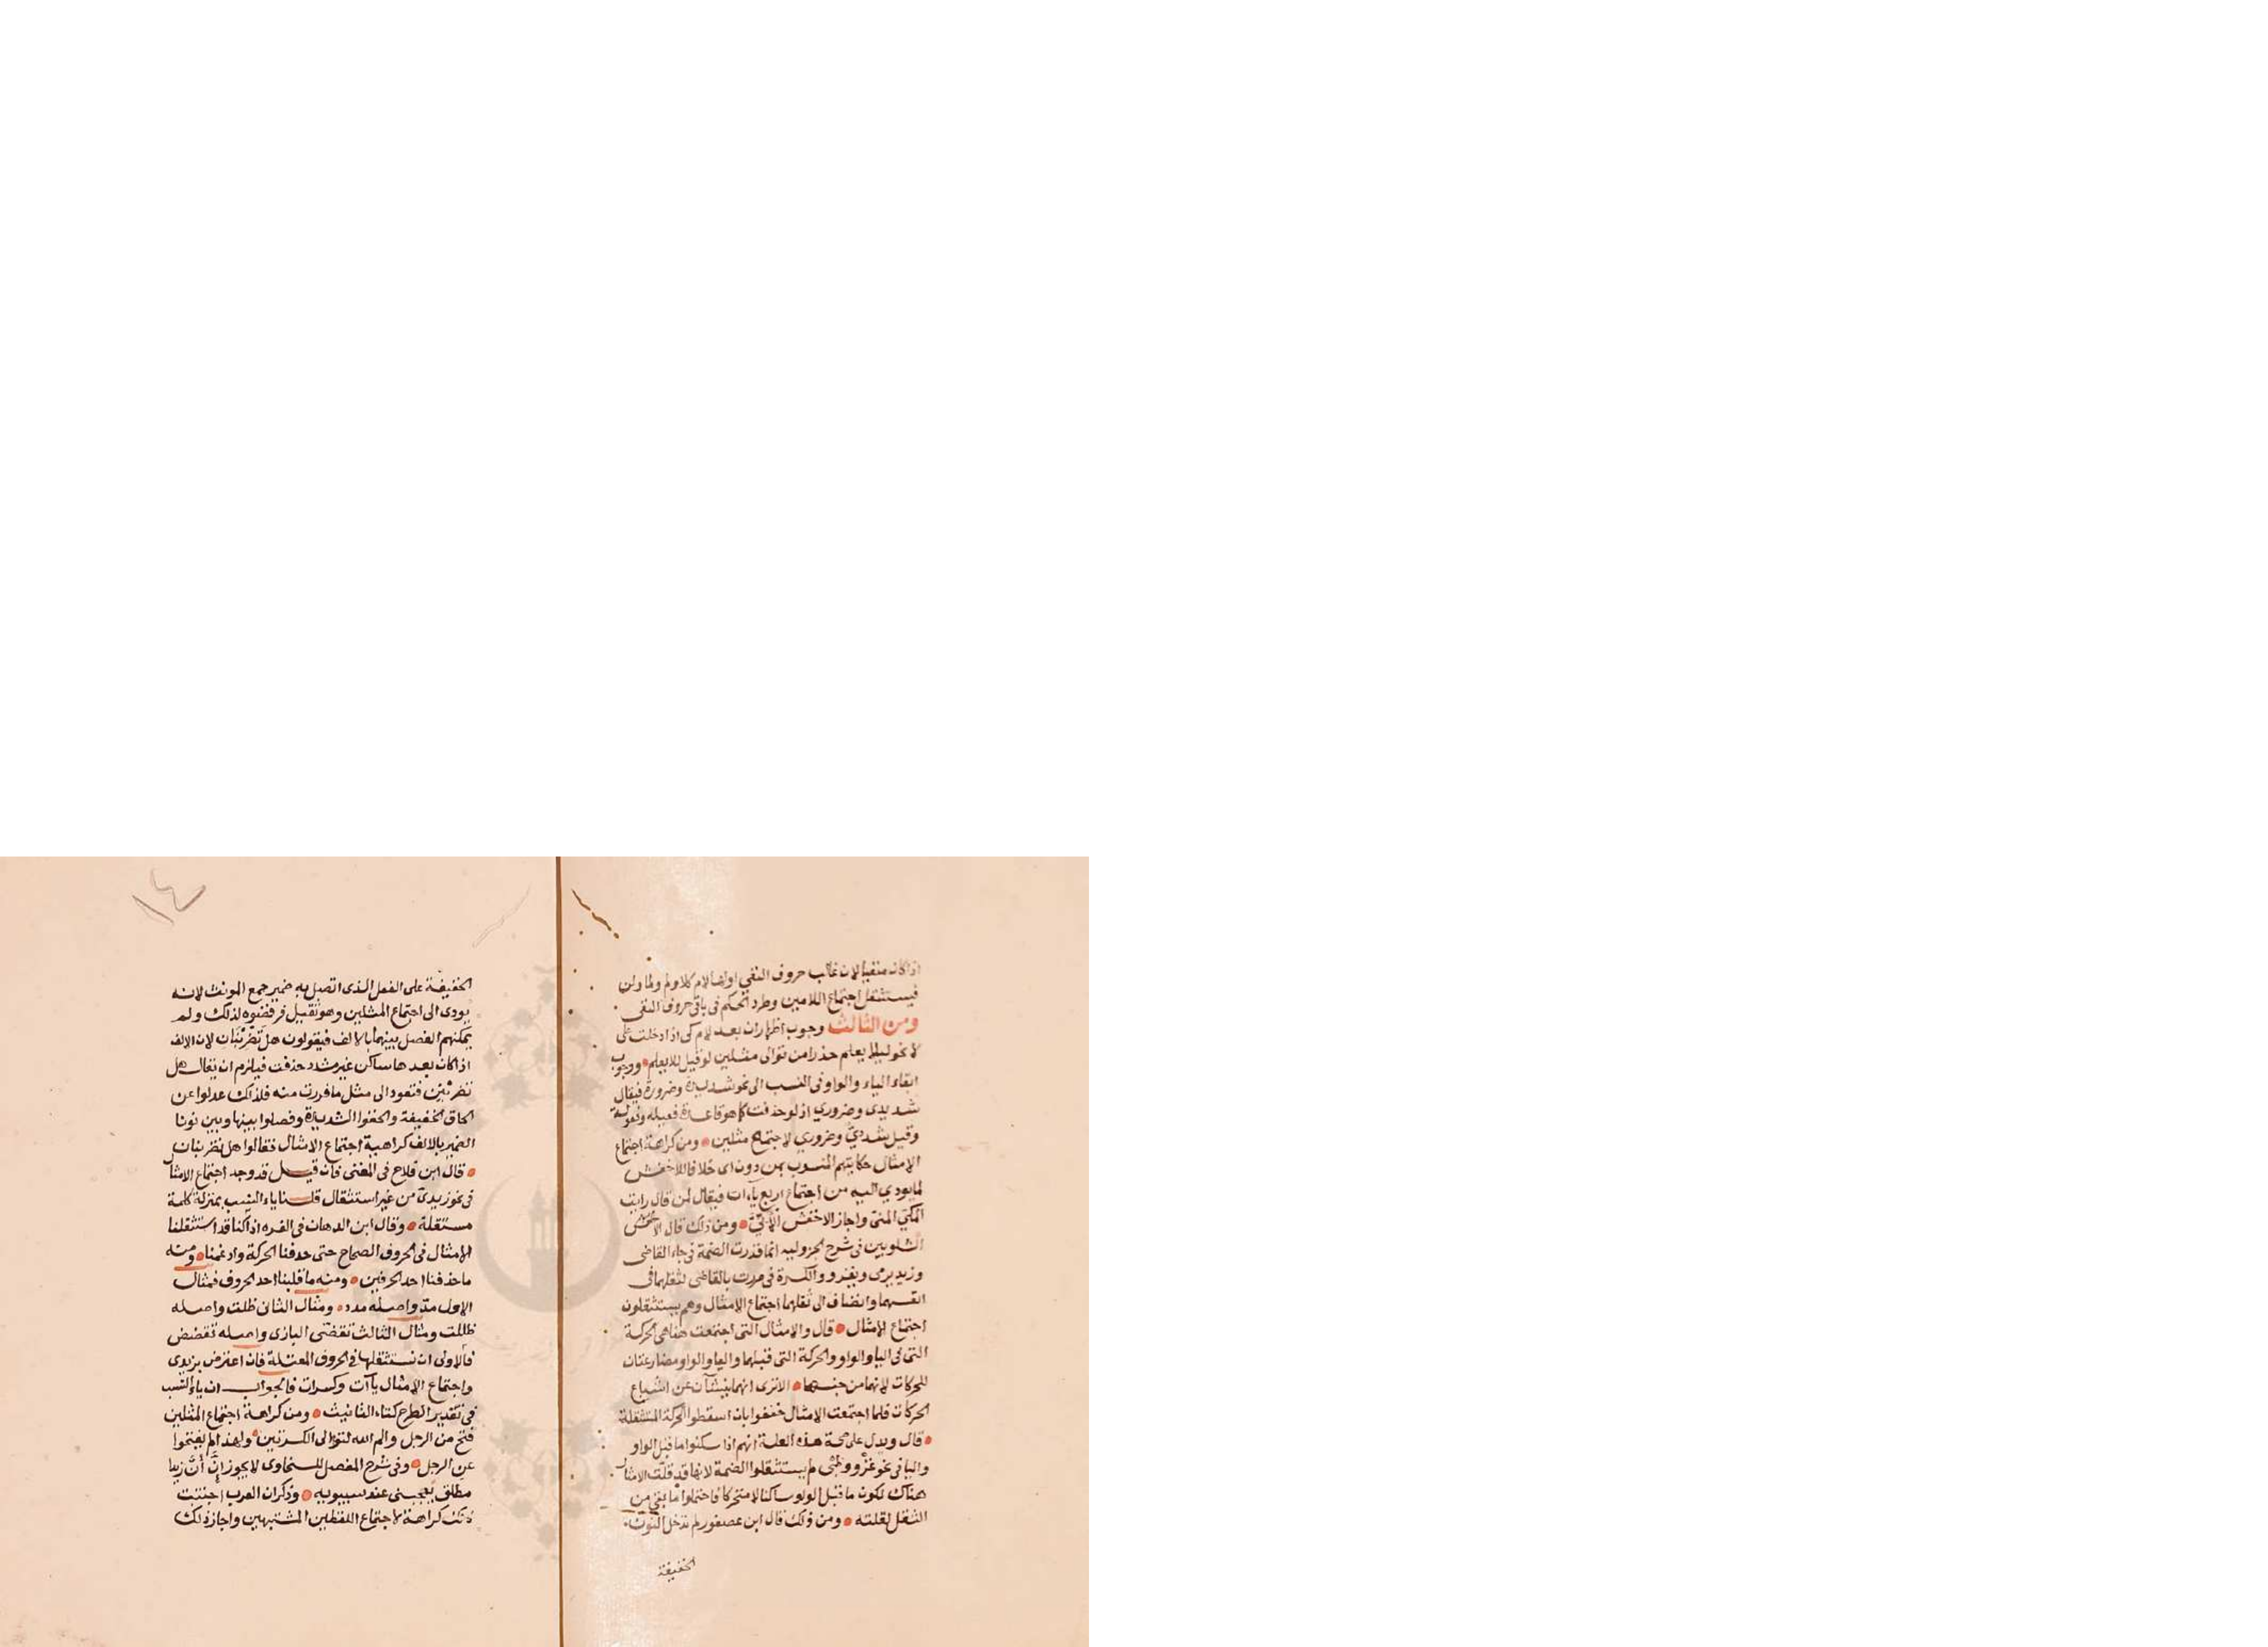 اذا كان منفيا لان غالب حروف النفي اولها لام كلا ولم ولما ولن
فيستثقل اجتماع اللامين وطرد الحكم في باقي حروف النفي
ومن الثالث وجوب اظهار ان بعد لام كي اذا دخلت على
لا نحو ليلا يعلم حذرا من توالي مثلين لو قيل للا يعلم ووجوب
ابقاء الياء والواو في النسب الى نحو شديدة وضرورة فيقال
شديدي وضروري اذ لو حذفت كما هو قاعدة فعيلة وفعولة
وقيل شددي وضرري لاجتمع مثلين ومن كراهة اجتماع
الامثال حكايتهم المنسوب بمن دون اي خلافا للاخفش
لما يودي اليه من اجتماع اربع ياءات فيقال لمن قال رايت
المكي المني واجاز الاخفش الأيّيّ ومن ذلك قال
الشلوبين في شرح الجزوليه انما قدرت الضمة في جاء القاضي
وزيد يرمي ويغزو والكسرة في مررت بالقاضي لثقلهما في
انفسهما وانضاف الى ثقلهما اجتماع الامثال وهم يستثقلون
اجتماع الامثال قال والامثال التي اجتمعت هنا هي الحركة
التي في اليا والواو والحركة التي قبلها واليا والواو ومضارعتان
للحركات لانهما من جنسها الا ترى انهما ينشآن عن اشباع
الحركات فلما اجتمعت الامثال خففوا بان اسقطوا الحركة المستثقلة
قال ويدل على صحة هذه العلة انهم اذا سكنوا ما قبل الواو
واليا في نحو غزو وظبي لم يستثقلوا الضمة لانها قد قلت الامثال
هناك لكون ما قبل الواو ساكنا لا متحركا فاحتملوا ما بقي من
الثقل لقلته ومن ذلك قال ابن عصفور لم تدخل النون
الخفيفة
١٤
الخفيفة على الفعل الذي اتصل به ضمير جمع المونث لانه
يودي الى اجتماع المثلين وهو ثقيل فرفضوه لذلك ولم
يمكنهم الفصل بينهما بالالف فيقولون هل تضربنان لان الالف
اذا كان بعدها ساكن غير مشدد حذفت فيلزم ان يقال هل
تضربنن فتعود الى مثل ما فررت منه فلذلك عدلوا عن
الحاق الخفيفة والحقوا الشديدة وفصلوا بينها وبين نونا
الضمير بالالف كراهية اجتماع الامثال فقالوا هل تضربنان
قال ابن فلاح في المغني فان قيل قد وجد اجتماع الامثال
في نحو زيديّ من غير استثقال قلنا ياء النسب بمنزلة كلمة
مستقلة وقال ابن الدهان في الغره اذا كنا قد استثقلنا
الامثال في الحروف الصحاح حتى حذفنا الحركة وادغمنا ومنه
ما حذفنا احد الحرفين ومنه ما قلبنا احد الحروف فمثال
الاول مدّ واصله مدد ومثال الثاني ظلت واصله
ظللت ومثال الثالث تقضّى البازي واصله تقضض
فالاولى ان نستثقلها في الحروف المعتلة فان اعترض بزيدي
واجتماع الامثال يآآت وكسرات فالجواب ان ياء النسب
في تقدير الطرح كتاء التانيث ومن كراهة اجتماع المثلين
فتح من الرجل والم الله لتوالي الكسرتين ولهذا لم يفتحوا
عن الرجل وفي شرح المفصل للسخاوي لا يجوز إنّ أنّ زيدا
مطلق يعجبني عند سيبويه وذكر ان العرب اجتنبت
ذلك كراهة لاجتماع اللفظين المشتبهين واجاز ذلك